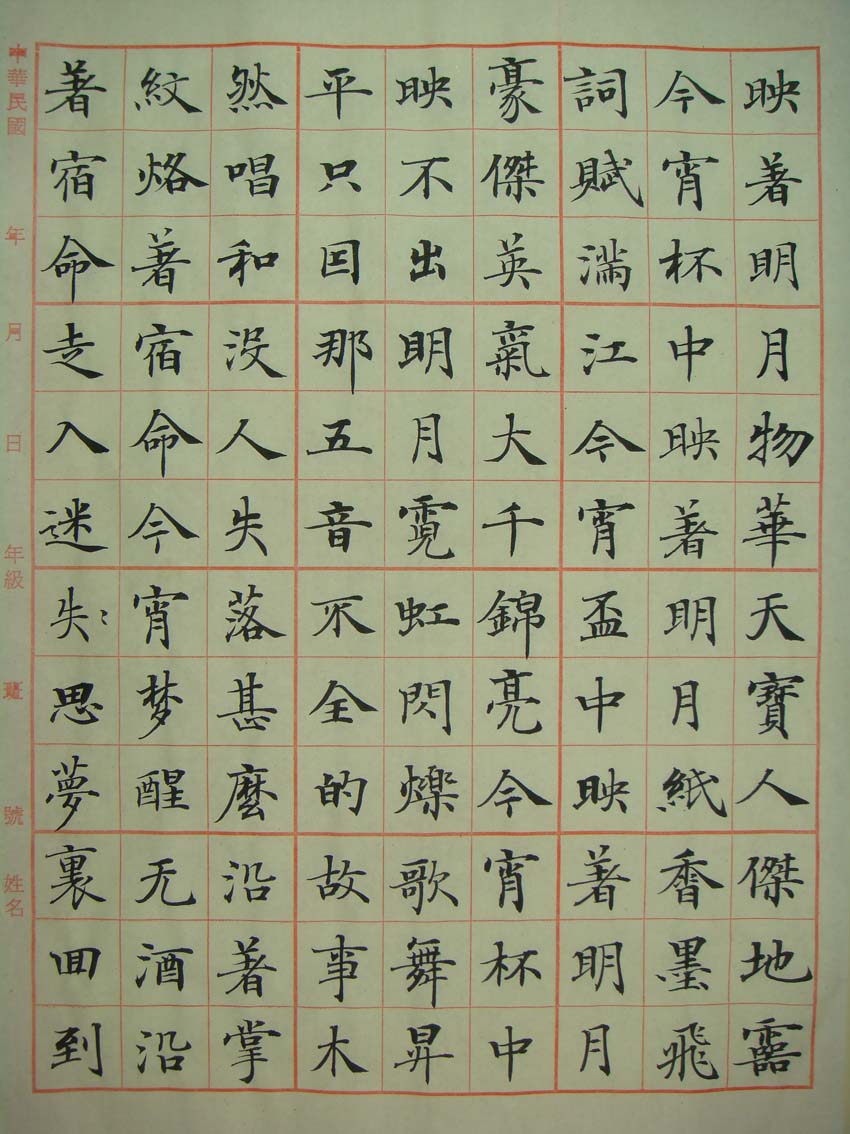 映著明月物華天寶人傑地靈
今宵杯中映著明月紙香墨飛
詞賦滿江今宵盃中映著明月
豪傑英氣大千錦亮今宵杯中
映不出明月霓虹閃爍歌舞昇
平只囙那五音不全的故事木
然唱和沒人失落甚麼沿著掌
紋烙著宿命今宵梦醒无酒沿
著宿命走入迷失〻思夢裏囬到
中華民國 年 月 日 年級 號 姓名